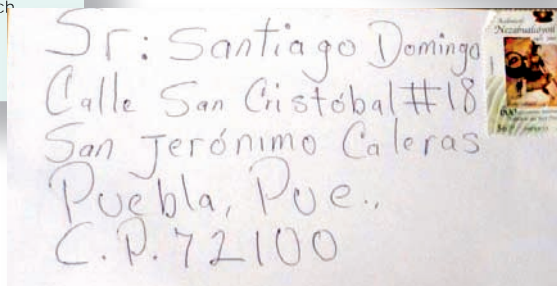 ch
Sr: Santiago Domingo
Calle San Cristóbal #18
San Jerónimo Caleras
Puebla, Pue.,
C.P. 72100
Nezahualcóyotl
600